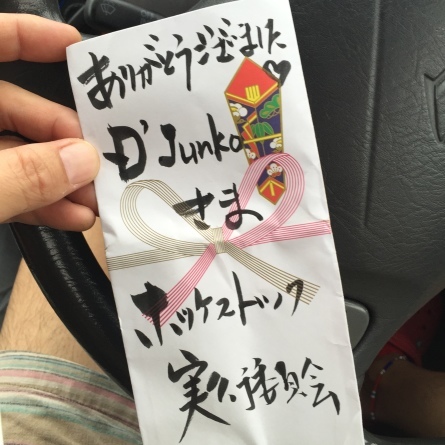 ありがとうございました♡
D'Junko
さま
ホッケストック
実行委員会